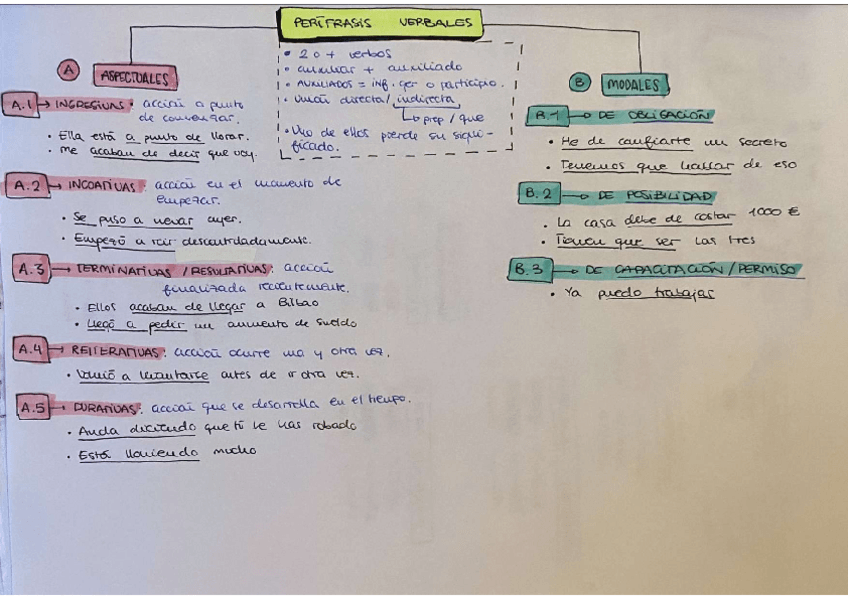 PERÍFRASIS VERBALES
• 2 o + verbos
• auxiliar + auxiliado
• AUXILIADOS = INF. ger o participio.
• Unión directa / indirecta,
↳ prep / que
• Uno de ellos pierde su signi-
ficado.
A ASPECTUALES
A.1 → INGRESIVAS: acción a punto
de comenzar.
• Ella está a punto de llorar.
• Me acaban de decir que voy.
A.2 → INCOATIVAS: acción en el momento de
empezar.
• Se puso a nevar ayer.
• Empezó a reir descontroladamente.
A.3 → TERMINATIVAS / RESULTATIVAS: acción
finalizada recientemente.
• Ellos acaban de llegar a Bilbao
• Llegó a pedir un aumento de sueldo
A.4 → REITERATIVAS: acción ocurre una y otra vez.
• Volvió a levantarse antes de ir otra vez.
A.5 → DURATIVAS: acción que se desarrolla en el tiempo.
• Anda diciendo que tú le has robado
• Está lloviendo mucho
B MODALES
B.1 → DE OBLIGACIÓN
• He de confiarte un secreto
• Tenemos que hablar de eso
B.2 → DE POSIBILIDAD
• La casa debe de costar 1000 €
• Tienen que ser las tres
B.3 → DE CAPACITACIÓN / PERMISO
• Ya puedo trabajar